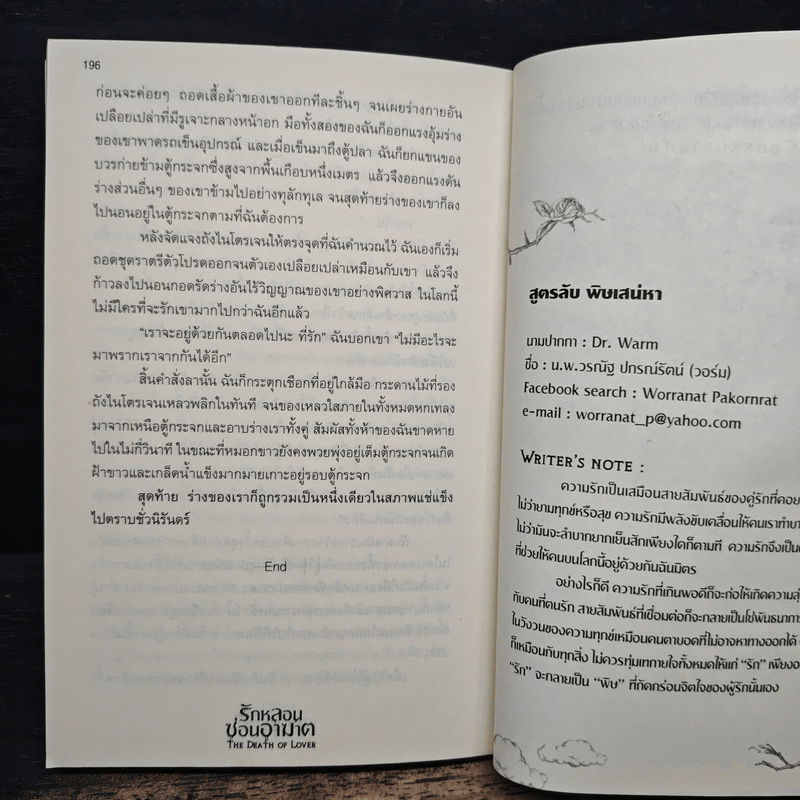 196
ก่อนจะค่อยๆ ถอดเสื้อผ้าของเขาออกทีละชิ้นๆ จนเผยร่างกายอัน
เปลือยเปล่าที่มีรูเจาะกลางหน้าอก มือทั้งสองของฉันก็ออกแรงอุ้มร่าง
ของเขาพาดรถเข็นอุปกรณ์ และเมื่อเข็นมาถึงตู้ปลา ฉันก็ยกแขนของ
บวรก่ายข้ามตู้กระจกซึ่งสูงจากพื้นเกือบหนึ่งเมตร แล้วจึงออกแรงดัน
ร่างส่วนอื่นๆ ของเขาข้ามไปอย่างทุลักทุเล จนสุดท้ายร่างของเขาก็ลง
ไปนอนอยู่ในตู้กระจกตามที่ฉันต้องการ
หลังจัดแจงถังไนโตรเจนให้ตรงจุดที่ฉันคำนวณไว้ ฉันเองก็เริ่ม
ถอดชุดราตรีตัวโปรดออกจนตัวเองเปลือยเปล่าเหมือนกับเขา แล้วจึง
ก้าวลงไปนอนกอดรัดร่างอันไร้วิญญาณของเขาอย่างพิศวาส ในโลกนี้
ไม่มีใครที่จะรักเขามากไปกว่าฉันอีกแล้ว
“เราจะอยู่ด้วยกันตลอดไปนะ ที่รัก” ฉันบอกเขา “ไม่มีอะไรจะ
มาพรากเราจากกันได้อีก”
สิ้นคำสั่งลานั้น ฉันก็กระตุกเชือกที่อยู่ใกล้มือ กระดานไม้ที่รอง
ถังไนโตรเจนเหลวพลิกในทันที จนของเหลวใสภายในทั้งหมดหกเทลง
มาจากเหนือตู้กระจกและอาบร่างเราทั้งคู่ สัมผัสทั้งห้าของฉันขาดหาย
ไปในไม่กี่วินาที ในขณะที่หมอกขาวยังคงพวยพุ่งอยู่เต็มตู้กระจกจนเกิด
ฝ้าขาวและเกล็ดน้ำแข็งมากมายเกาะอยู่รอบตู้กระจก
สุดท้าย ร่างของเราก็ถูกรวมเป็นหนึ่งเดียวในสภาพแช่แข็ง
ไปตราบชั่วนิรันดร์
End
รักหลอน
ซ่อนอาฆาต
THE DEATH OF LOVER
สูตรลับ พิษเสน่หา
นามปากกา : Dr. Warm
ชื่อ : น.พ.วรณัฐ ปกรณ์รัตน์ (วอร์ม)
Facebook search : Worranat Pakornrat
e-mail : worranat_p@yahoo.com
WRITER'S NOTE :
ความรักเป็นเสมือนสายสัมพันธ์ของคู่รักที่คอย
ไม่ว่ายามทุกข์หรือสุข ความรักมีพลังขับเคลื่อนให้คนเราทำ
ไม่ว่ามันจะลำบากยากเย็นสักเพียงใดก็ตามที ความรักจึงเป็น
ที่ช่วยให้คนบนโลกนี้อยู่ด้วยกันฉันมิตร
อย่างไรก็ดี ความรักที่เกินพอดีก็จะก่อให้เกิดความ
กับคนที่ตนรัก สายสัมพันธ์ที่เชื่อมต่อก็จะกลายเป็นโซ่พันธนาการ
ในวังวนของความทุกข์เหมือนคนตาบอดที่ไม่อาจหาทางออกได้
ก็เหมือนกับทุกสิ่ง ไม่ควรทุ่มเทกายใจทั้งหมดให้แก่ “รัก”
“รัก” จะกลายเป็น “พิษ” ที่กัดกร่อนจิตใจของผู้รักนั้นเอง